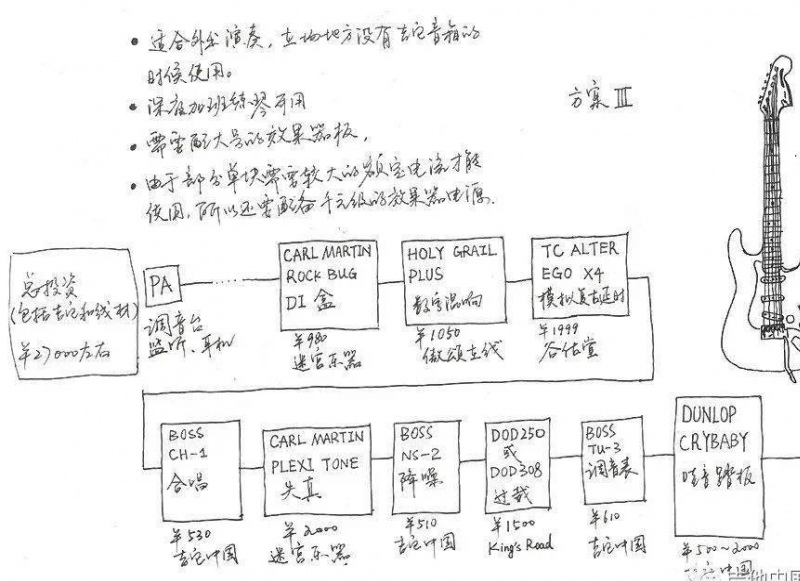 • 适合外出演奏，在场地方没有吉它音箱的
时候使用。
• 深夜加班练琴可用
• 需要配大号的效果器板，
• 由于部分单块需要较大的额定电流才能
使用，所以还要配备千元级的效果器电源。
方案 III
总投资
(包括吉它和线材)
¥27000左右
PA
调音台
监听、耳机
CARL MARTIN
ROCK BUG
DI 盒
¥980
迷宫乐器
HOLY GRAIL
PLUS
数字混响
¥1050
傲颂在线
TC ALTER
EGO X4
模拟复古延时
¥1999
谷佐堂
BOSS
CH-1
合唱
¥530
吉它中国
CARL MARTIN
PLEXI TONE
失真
¥2000
迷宫乐器
BOSS
NS-2
降噪
¥510
吉它中国
DOD250
或
DOD308
过载
¥1500
King's Road
BOSS
TU-3
调音表
¥610
吉它中国
DUNLOP
CRYBABY
哇音踏板
¥500~2000
吉它中国